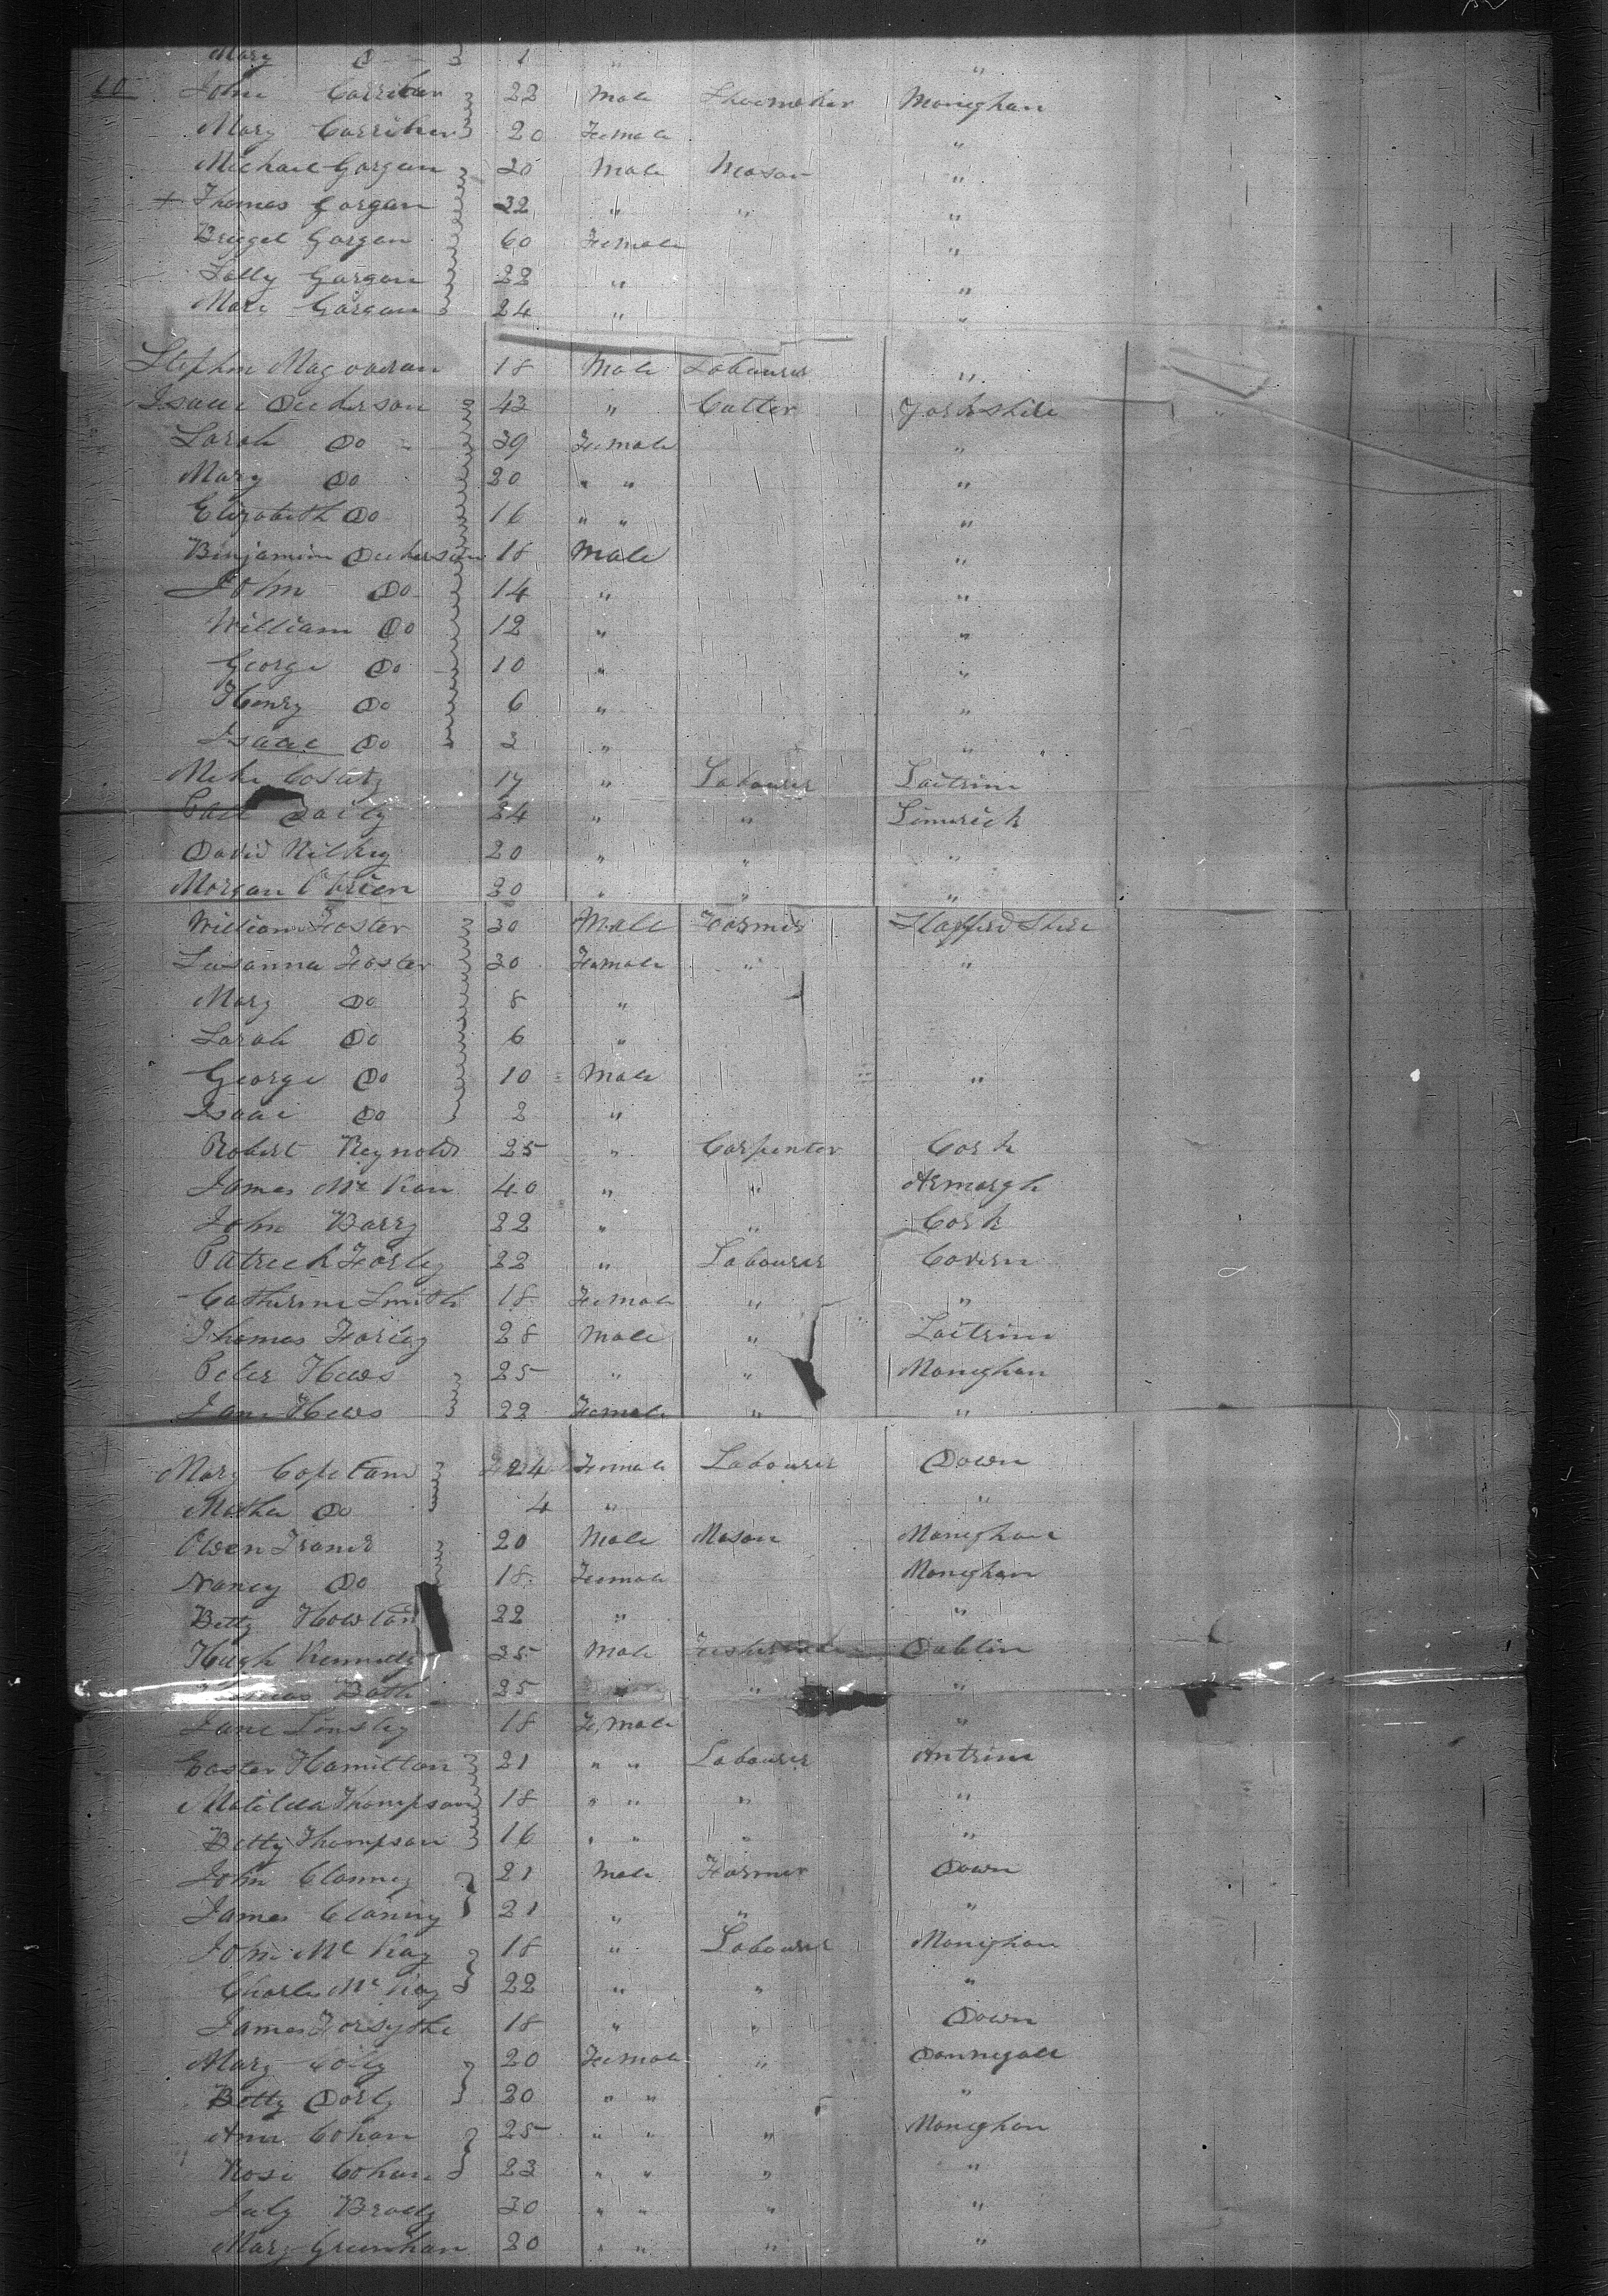 Mary Do 1 " "
10 John Carriber 22 Male Shoemaker Moneghan
Mary Carriber 20 Female "
Michael Gargan 20 Male Mason "
+ Thomas Gargan 22 " " "
Bridget Gargan 60 Female "
Sally Gargan 22 " "
Mary Gargan 24 " "
Stephen Magoveran 18 Male Labourer "
Isaac Dickerson 43 " Cutter Yorkshire
Sarah Do 39 Female "
Mary Do 20 " " "
Elizabeth Do 16 " " "
Binjamin Dickerson 18 Male "
John Do 14 " "
William Do 12 " "
George Do 10 " "
Henry Do 6 " "
Isaac Do 3 " "
Mike 17 " Labourer Laitrim
Patt Daily 24 " " Limerick
David 20 " " "
Morgan O'Brien 20 " " "
William Foster 30 Male Farmer Stafford Shire
Susanna Foster 30 Female " "
Mary Do 8 "
Sarah Do 6 "
George Do 10 Male "
Isaac Do 2 "
Robert Reynolds 25 " Carpenter Cork
James Mc Kan 40 " " Armargh
John Barry 22 " " Cork
Patrick Farly 22 " Labourer Cavern
Catherine Smith 18 Female " "
Thomas Farley 28 Male " Laitrim
Peter Hews 25 " " Moneghan
Jane Hews 22 Female " "
Mary 24 Female Labourer Down
Do 4 " "
Owen 20 Male Mason Moneghan
Nancy Do 18 Female Moneghan
Betty 22 " "
Hugh Kennedy 25 Male Dublin
25 " " "
Jane Linsley 18 Female "
Easter Hamilton 21 " " Labourer Antrim
Matilda Thompson 18 " " " "
Betty Thompson 16 " " " "
John Clanny 21 Male Farmer Down
James Clanny 21 " " "
John Mc Kay 18 " Labourer Moneghan
Charles Mc Kay 22 " " "
James Forsythe 18 " " Down
Mary 20 Female " Donnegall
Betty 20 " " "
Ann Cohan 25 " " " Moneghan
Rose Cohan 23 " " " "
July Brady 30 " " " "
Mary Greenhan 20 " " " "